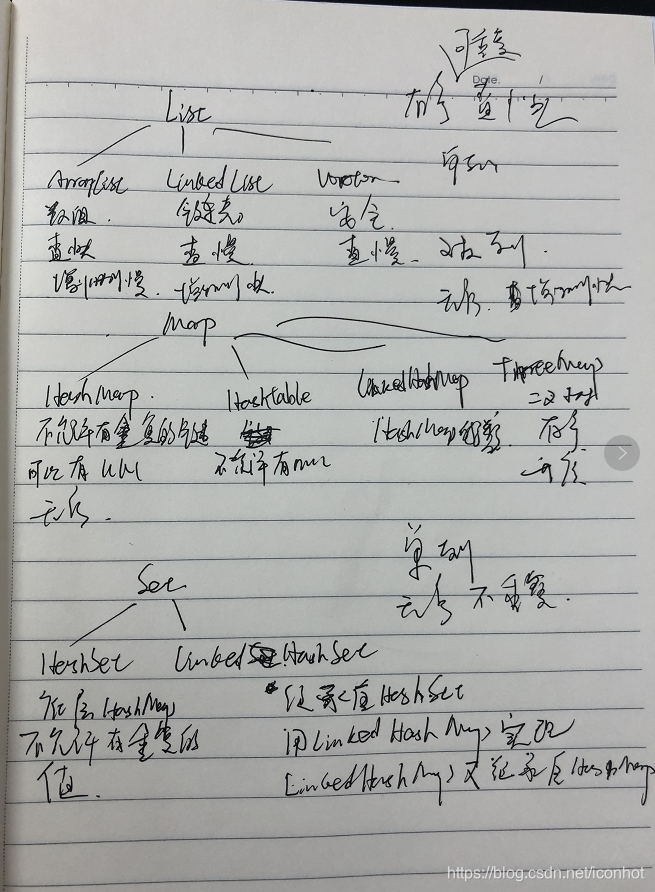 可重复
Date.
List
有序 查快
ArrayList LinkedList Vector 单列
数组. 链表 安全
查快 查慢 查慢. 双列.
增删慢. 增删快. 无序. 增删快
Map
HashMap. HashTable LinkedHashMap TreeMap
不允许有重复的键 HashMap的子类. 有序
可以有null 不允许有null
无序.
单列
Set 无序 不重复.
HashSet Linked HashSet
底层HashMap 继承自HashSet
不允许有重复的 用LinkedHashMap实现
值. LinkedHashMap又继承自HashMap
https://blog.csdn.net/iconhot